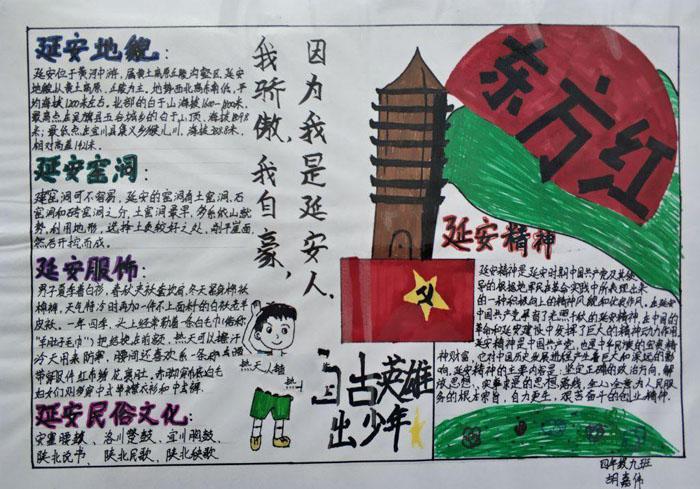 延安地貌:
延安位于黄河中游,属黄土高原丘陵沟壑区,延安
地貌以黄土高原、丘陵为主,地势西北高东南低,平
均海拔1200米左右,北部的白于山海拔1600-1800米,
最高点在吴旗县五谷城乡的白于山顶,海拔1809.8
米;最低点在宜川县集义乡猴儿川,海拔388.8米,
相对高差1421米。
延安窑洞
建窑洞可不容易,延安的窑洞有土窑洞、石
窑洞和砖窑洞之分,土窑洞最早,多依山就
势,利用地形,选择土质较好之处,削平崖面,
然后开挖而成。
延安服饰:
冷天用来防寒,腰间还喜欢系一条
延安民俗文化:
安塞腰鼓、洛川蹩鼓、宜川胸鼓、
陕北说书、陕北民歌、陕北秧歌
因为我是延安人,
我骄傲,我自豪,
热天
自古英雄
出少年
东方红
延安精神
延安精神是延安时期中国共产党及其领
导的根据地军民在革命实践中所表现出来
的一种积极向上的精神风貌和优良作风,在延安
中国共产党展首了光照千秋的延安精神,在中国的
革命和延安建设中发挥了巨大的精神动力作用。
延安精神是中国共产党,也是中华民族的宝贵精
神财富,它对中国历史发展进程产生着巨大和深远的影
响。延安精神的主要内容是:坚定正确的政治方向,解
放思想、实事求是的思想路线,全心全意为人民服
务的根本宗旨,自力更生、艰苦奋斗的创业精神。
四年级九班
胡嘉伟